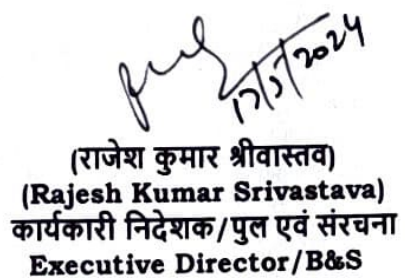 17/7/2024
(राजेश कुमार श्रीवास्तव)
(Rajesh Kumar Srivastava)
कार्यकारी निदेशक/पुल एवं संरचना
Executive Director/B&S